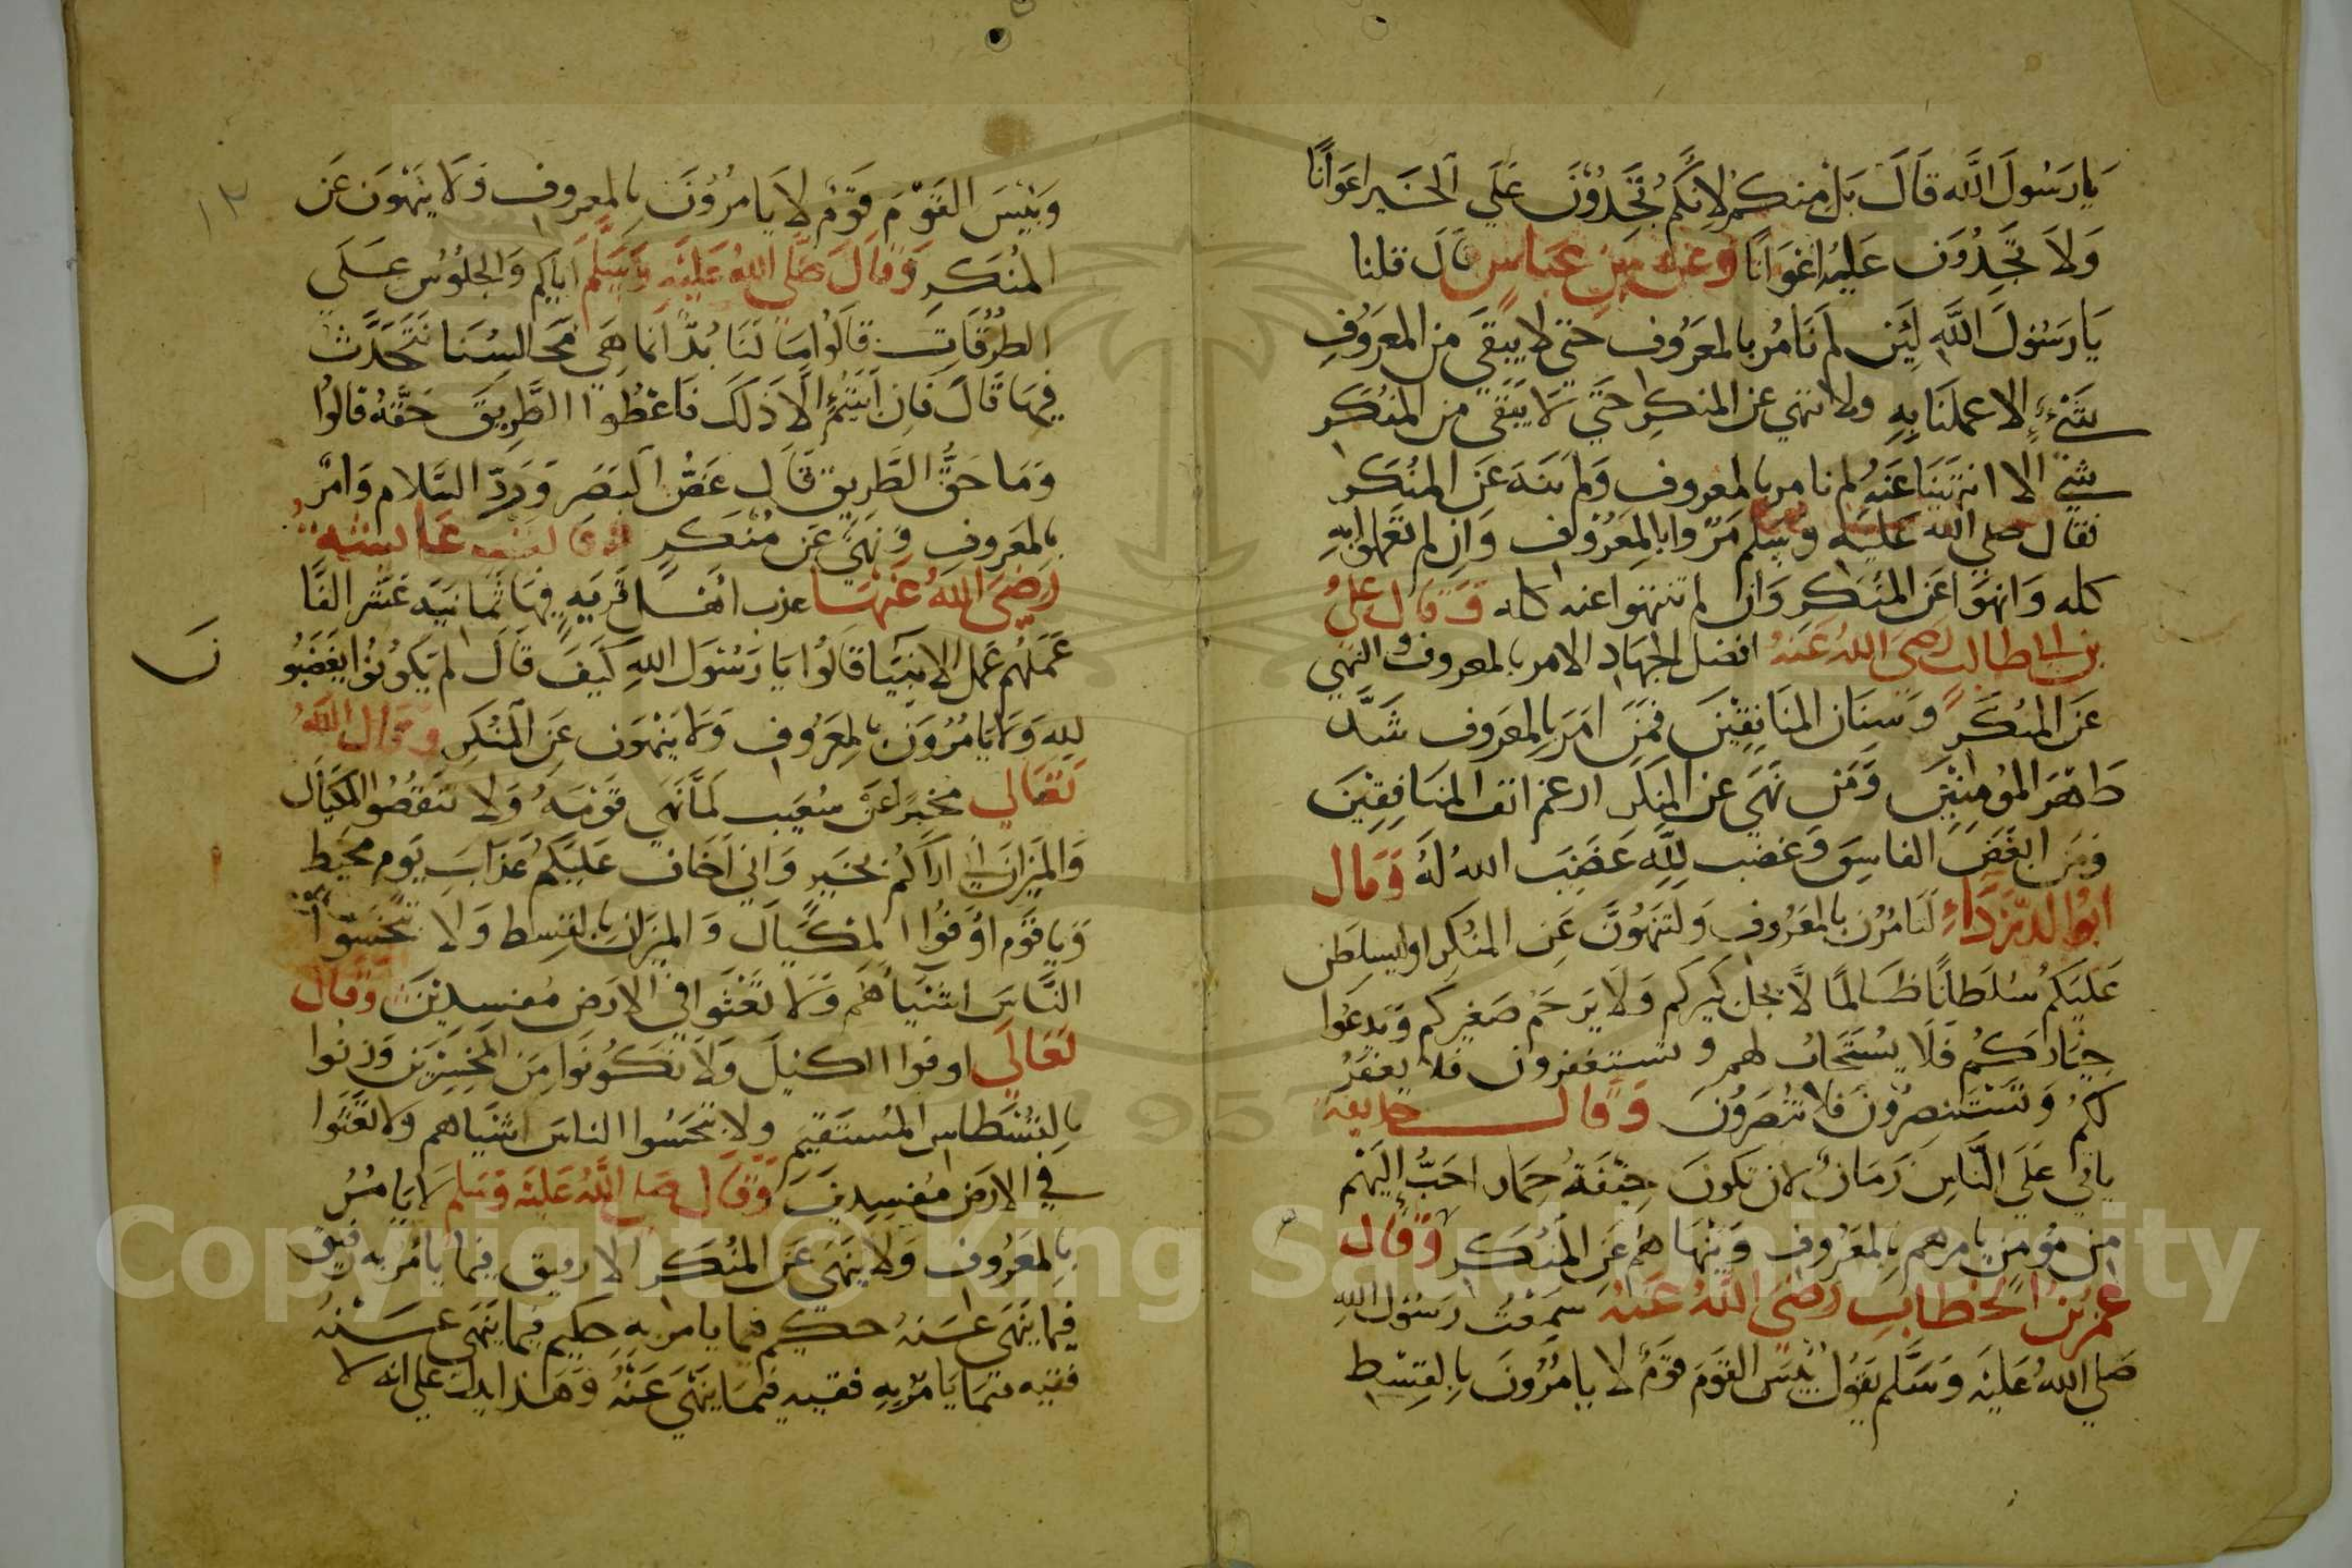 يا رسول الله قال بل منكم لانكم تجدون علي الخير اعوانا
ولا تجدون عليه اعوانا وعن بن عباس قال قلنا
يا رسول الله لئن لم نامر بالمعروف حتي لا يبقي من المعروف
شيء الا عملنا به ولا ننهي عن المنكر حتي لا يبقي من المنكر
شي الا انتهينا عنه لم نامر بالمعروف ولم ننه عن المنكر
فقال صلي الله عليه وسلم مروا بالمعروف وان لم تعملوا به
كله وانهوا عن المنكر وان لم تنتهوا عنه كله وقال علي
بن ابي طالب رضي الله عنه افضل الجهاد الامر بالمعروف والنهي
عن المنكر وسنان المنافقين فمن امر بالمعروف شد
ظهر المؤمنين ومن نهي عن المنكر ارغم انف المنافقين
ومن ابغض الفاسق وغضب لله غضب الله له وقال
ابو الدرداء لتامرن بالمعروف ولتنهون عن المنكر او ليسلطن
عليكم سلطانا ظالما لا يجل كبيركم ولا يرحم صغيركم وتدعوا
خياركم فلا يستجاب لهم وتستغفرون فلا يغفر
لكم وتستنصرون فلا تنصرون وقال حذيفة
ياتي علي الناس زمان لان تكون جيفة حمار احب اليهم
من مومن يامرهم بالمعروف وينهاهم عن المنكر وقال
عمر بن الخطاب رضي الله عنه سمعت رسول الله
صلي الله عليه وسلم يقول بئس القوم قوم لا يامرون بالقسط
١٢
وبئس القوم قوم لا يامرون بالمعروف ولا ينهون عن
المنكر وقال صلي الله عليه وسلم اياكم والجلوس علي
الطرقات قالوا ما لنا بد انما هي مجالسنا نتحدث
فيها قال فان ابيتم الا ذلك فاعطوا الطريق حقه قالوا
وما حق الطريق قال غض البصر ورد السلام وامر
بالمعروف ونهي عن منكر وقالت عائشة
رضي الله عنها عذب اهل قرية فيها ثمانية عشر الفا
عملهم عمل الانبيا قالوا يا رسول الله كيف قال لم يكونوا يغضبو
لله ولا يامرون بالمعروف ولا ينهون عن المنكر وقال الله
تعالي مخبرا عن شعيب لما نهي قومه ولا تنقصوا المكيال
والميزان اني اراكم بخير واني اخاف عليكم عذاب يوم محيط
ويا قوم اوفوا المكيال والميزان بالقسط ولا تبخسوا
الناس اشياهم ولا تعثوا في الارض مفسدين وقال
تعالي اوفوا الكيل ولا تكونوا من المخسرين وزنوا
بالقسطاس المستقيم ولا تبخسوا الناس اشياهم ولا تعثوا
في الارض مفسدين وقال صلي الله عليه وسلم لا يامر
بالمعروف ولا ينهي عن المنكر الا رفيق فيما يامر به رفيق
فيما ينهي عنه حكيم فيما يامر به حكيم فيما ينهي عنه
فقيه فيما يامر به فقيه فيما ينهي عنه وهذا يدل علي انه لا
Copyright © King Saud University
1957